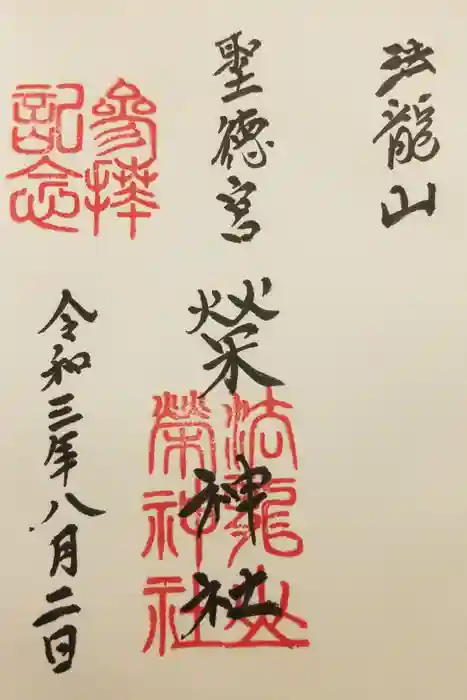 法龍山
聖徳宮
榮神社
法龍山
榮神社
参拝
記念
令和三年八月二日